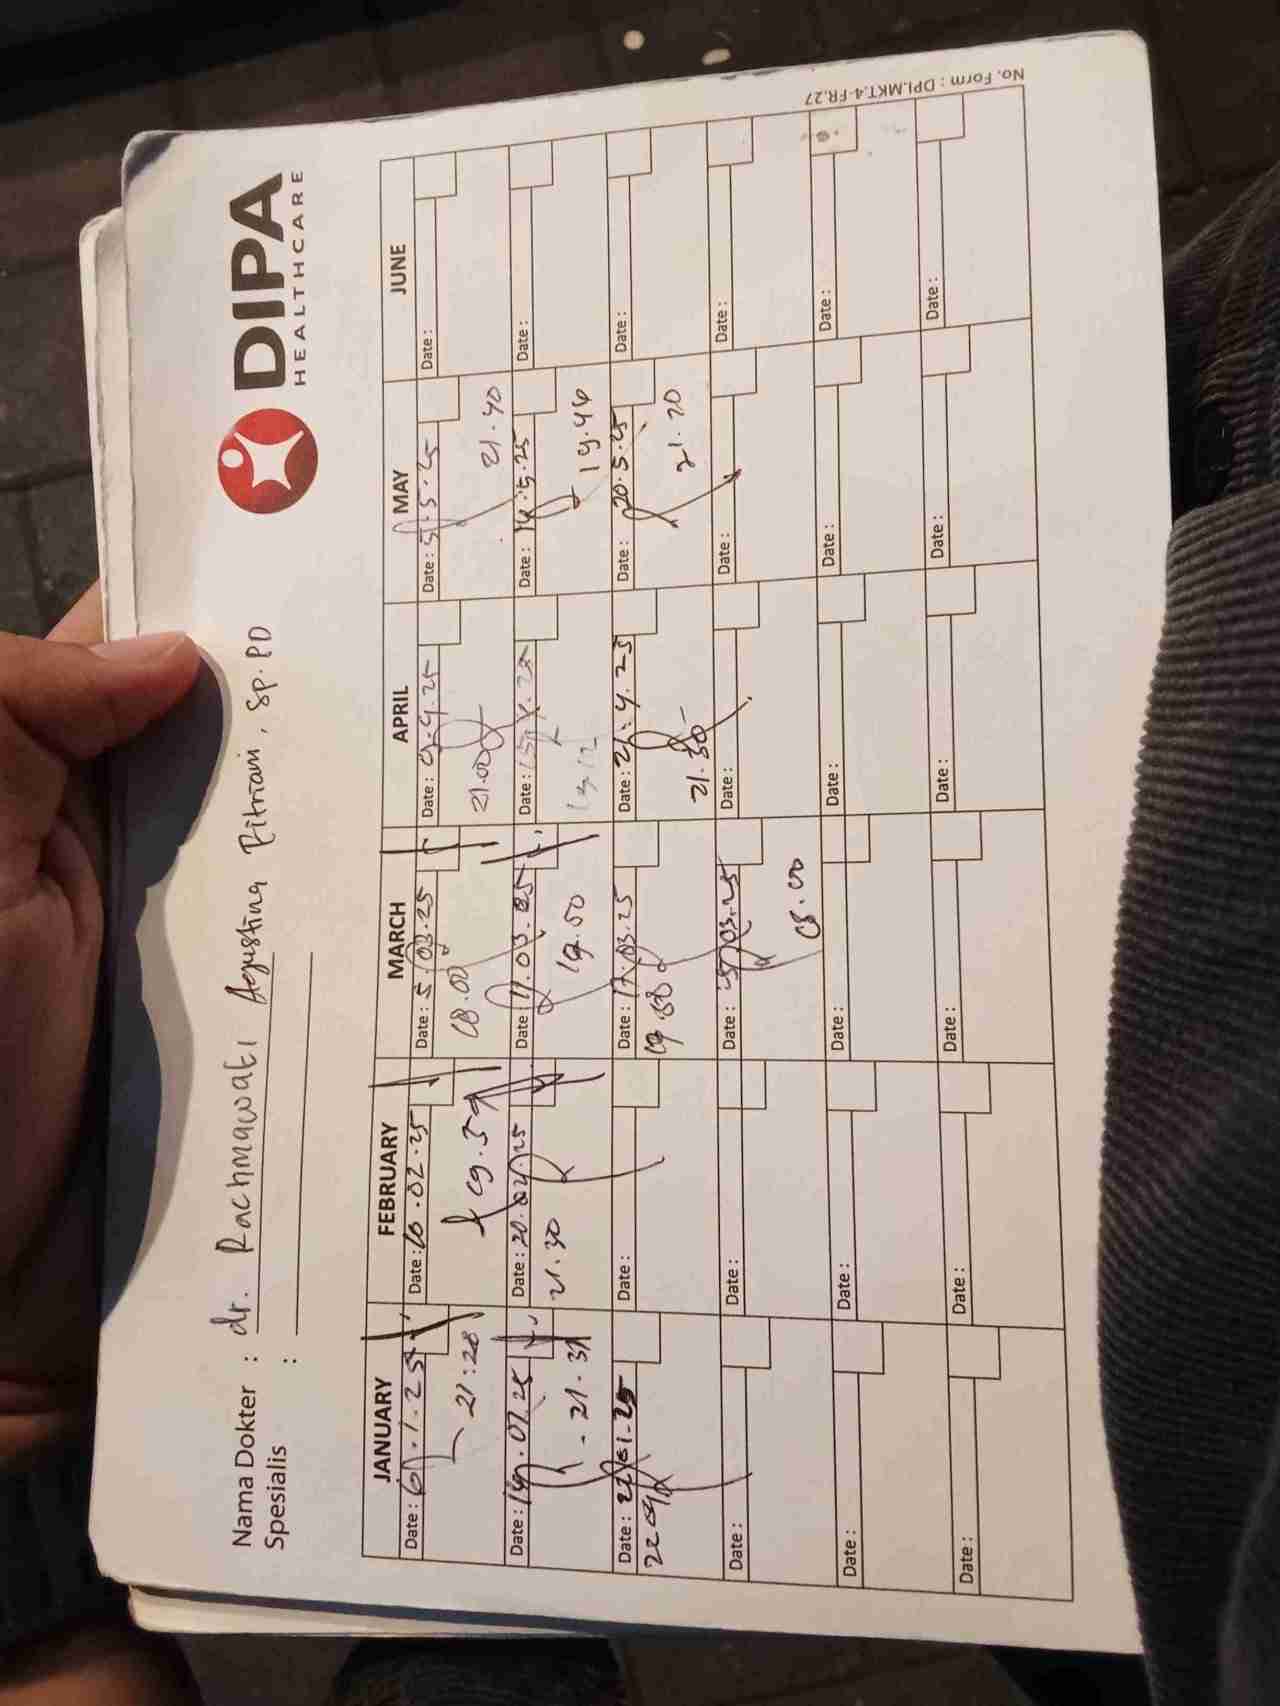 DIPA
HEALTHCARE
Nama Dokter : dr. Rachmawati Agustina Fitriani, Sp.PD
Spesialis :
JANUARY FEBRUARY MARCH APRIL MAY JUNE
Date: 6.1.25 Date: 10.02.25 Date: 5.03.25 Date: 9.4.25 Date: 5.5.25 Date:
21:28 08.00 21.00 21.40
Date: Date: 20.02.25 Date: 11.03.25 Date: Date: 14.5.25 Date:
21.31 21.30 19.50 19.12 19.46
Date: Date: Date: 17.03.25 Date: 21.4.25 Date: 20.5.25 Date:
21.30 21.20
Date: Date: Date: Date: Date: Date:
08.00
Date: Date: Date: Date: Date: Date:
Date: Date: Date: Date: Date: Date:
No. Form : DPI.MKT.4-FR.27